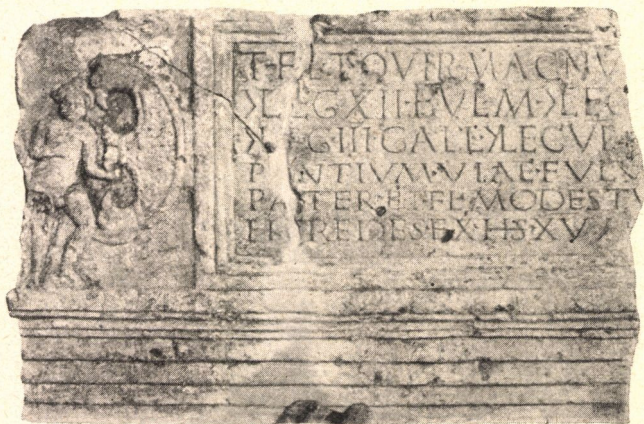 T·FL·T·QVIR·MAGNV
>LEG XII·FVLM·>LEG
>LEG·III GALL>LEG VI
P NTIVM·VIAE·FVLV
PASTER·ET·FL·MODEST
HEREDES·EX·HS·XV